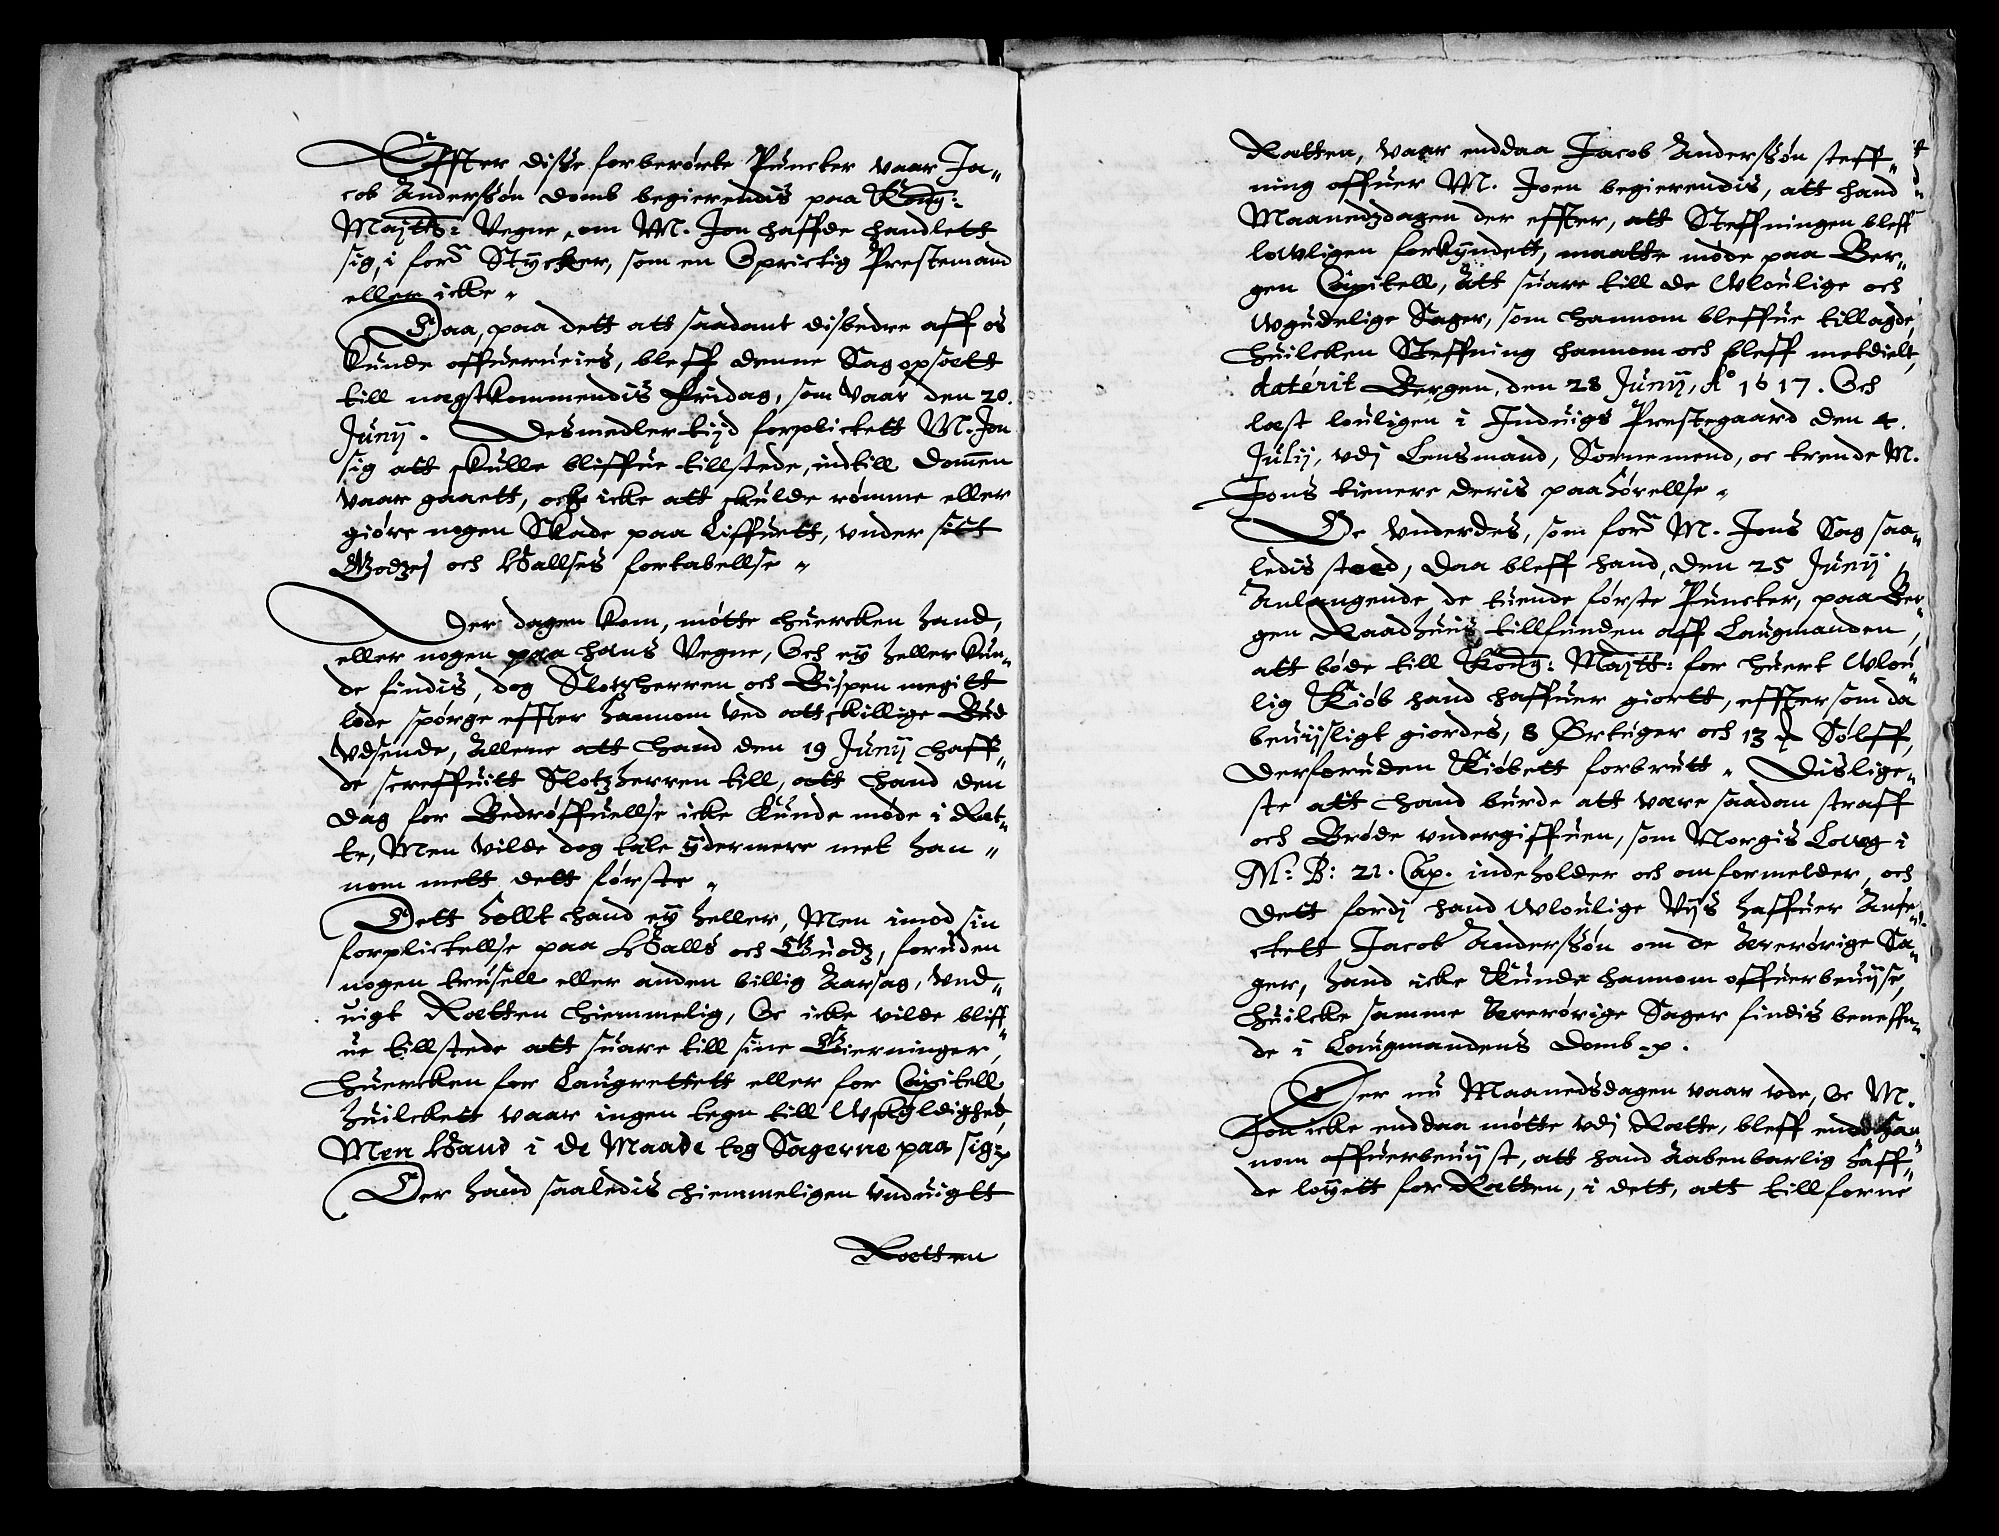 Effter disse forberørte Puncter vaar Ja„
cob Anderssøn domb begierendis paa Kong:
Maÿtts: Vegne, om M. Jon haffde handlett
sig, i ford Stÿcker, som en Oprictig Prestemand
eller icke „
Daa, paa dett att saadant disbedre aff os
kunde offuerueies, bleff denne Sag opsatt
till nagstkommendis Fridag, som vaar den 20.
Junÿ. Desmedler tijd forplictett M. Jon
sig att skulle bliffue tillstede, indtill domen
vaar gaaett, och icke att skulde rømme eller
giøre nogen Skade paa Liffuett, vnder sitt
Godzes och Hallses fortabellse „
Der dagen kom, møtte huercken hand,
eller nogen paa hans Vegne, Och eÿ heller kun„
de findis, dog Slotzherren och Bispen megitt
lode spørge effter hannom ved attskillige Bud
vdsende, Allene att hand den 19 Junÿ haff„
de screffuitt Slotzherren till, att hand den
dag for Bedrøffuellse icke kunde møde i Ræt„
te, Men vilde dog tale ÿdermere met han„
nom mett dett første „
Dett hollt hand eÿ heller, Men imod sin
forplictellse paa Halls och Guodz, foruden
nogen trusell eller anden billig Aarsag, vnd„
uigt Rætten hiemmelig, Oc icke vilde bliff„
ue tillstede att suare till sine Gierninger,
huercken for Laugrettett eller for Capitell
huilckett vaar ingen tegn till Vskÿldighed,
Men Hand i de Maade tog Sagerne paa sig
Der hand saaledis hiemmeligen vnduigtt
Rætten
Rætten, vaar enddaa Jacob Anderssøn steff„
ning offuer M. Joen begierendis, att hand
Maanedzdagen der effter, att Steffningen bleff
lowligen forkÿndett, maatte møde paa Ber„
gen Capitell, att suare till de Wloulige och
Wgudelige Sager, som hannom bleffue tillagde,
huilcken Steffning hannom och bleff metdielt,
daterit Bergen, den 28 Junÿ, Ao 1617. Och
læst louligen i Induigs Prestegaard den 4.
Julij, vdj Lensmand, Sornemend, oc trende M.
Jons tienere deris paahørellse „
De vnderdes, som ford M. Jons Sag saa„
ledis stoed, daa bleff hand, den 25 Junÿ,
Anlangende de tuende første Puncter, paa Ber„
gen Raadhuus tillfunden aff Laugmanden,
att bøde till Kong: Maÿtt: for huert Wlou„
lig Kiøb hand haffuer giortt, effter som da
beuÿsligt giordes, 8 Ørtuger och 13 Sølff,
derforuden Kiøbett forbrutt „ Dislige„
ste att hand burde att være saadan straff
och Brøde vndergiffuen, som Norgis Lowg i
M: B: 21. Cap. indeholder och omformelder, och
dett fordj hand Wloulige Vijs haffuer Anfe„
ctett Jacob Anderssøn om de Ærerørige Sa„
ger, hand icke kunde hannom offuerbeuÿse,
huilcke samme Ærerørige Sager findis beneffn„
de i Laugmandens Domb.
Der nu Maanedsdagen vaar vde, Oc M.
Jon icke enddaa møtte vdj Rætte, bleff end han„
nom offuerbeuÿst, att hand Aabenbarlig haff„
de løÿett for Rætten, i dett, att tillforne